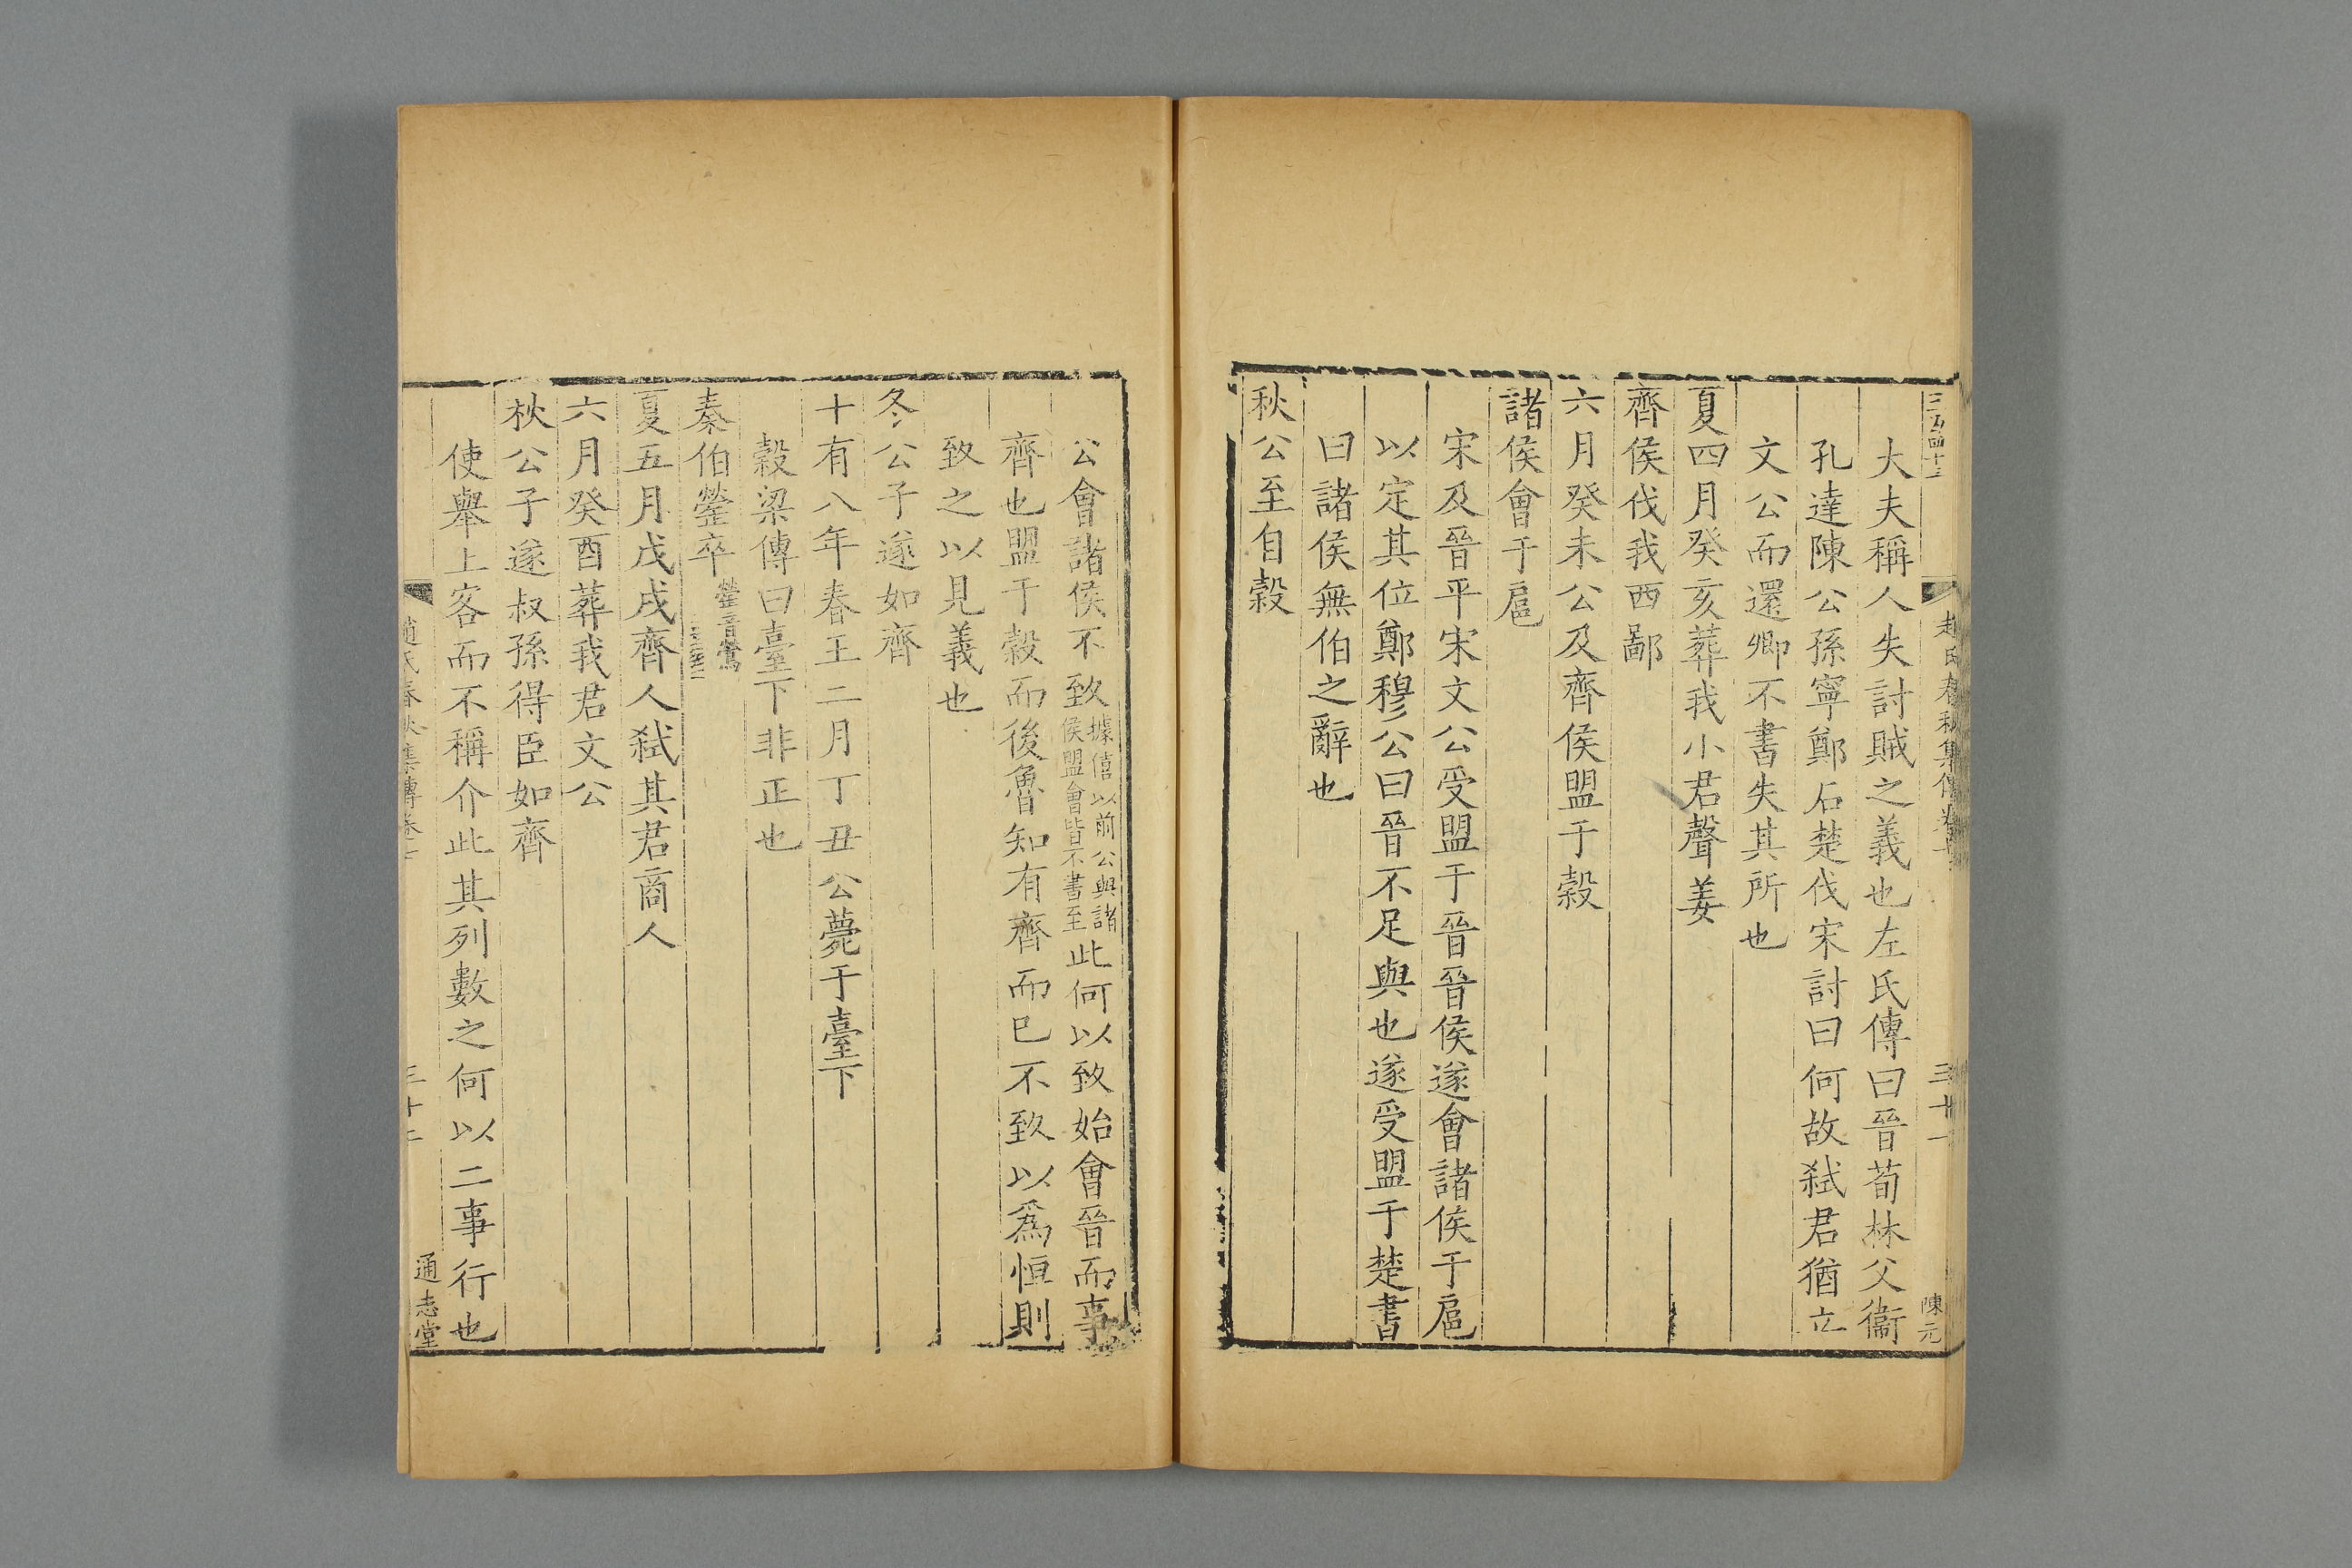 趙氏春秋集傳卷
三十一
陳元
大夫稱人失討賊之義也左氏傳曰晉荀林父衞
孔達陳公孫寧鄭石楚伐宋討曰何故弑君猶立
文公而還卿不書失其所也
夏四月癸亥葬我小君聲姜
齊侯伐我西鄙
六月癸未公及齊侯盟于穀
諸侯會于扈
宋及晉平宋文公受盟于晉晉侯遂會諸侯于扈
以定其位鄭穆公曰晉不足與也遂受盟于楚書
曰諸侯無伯之辭也
秋公至自穀
公會諸侯不致據僖以前公與諸侯盟會皆不書至此何以致始會晉而事
齊也盟于穀而後魯知有齊而已不致以爲恒則
致之以見義也
冬公子遂如齊
十有八年春王二月丁丑公薨于臺下
穀梁傳曰臺下非正也
秦伯罃卒罃音鶯
夏五月戊戌齊人弑其君商人
六月癸酉葬我君文公
秋公子遂叔孫得臣如齊
使舉上客而不稱介此其列數之何以二事行也
趙氏春秋集傳卷
三十二
通志堂